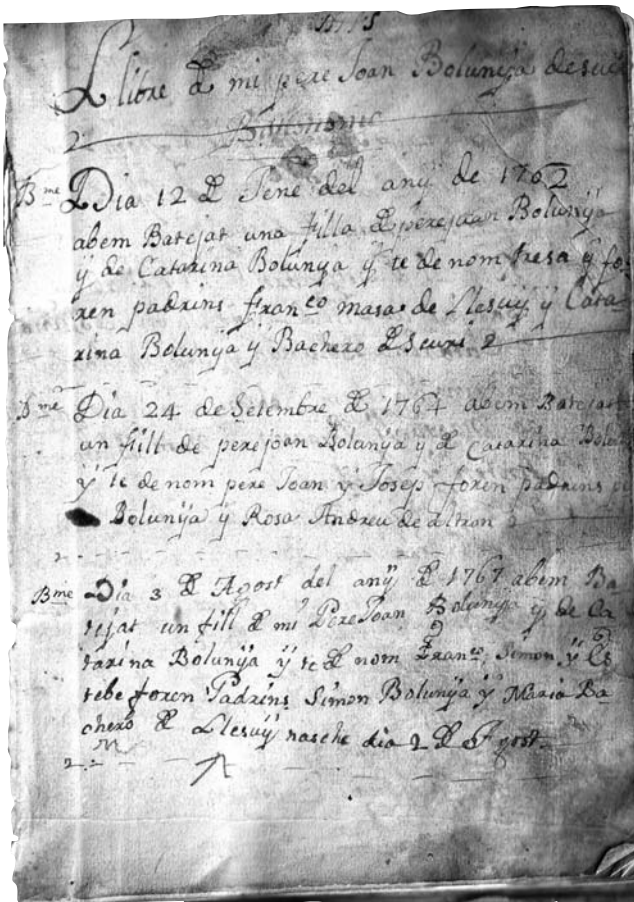 Llibre d mi pere Joan Bolunyà de
Dia 12 d Jené del any de 1762
abem Batejat una filla d perejoan Bolunya
ÿ de Catarina Bolunya ÿ te de nom tresa ÿ fo-
ren padrins fran^co masa de Llesuÿ ÿ Cata-
rina Bolunÿa ÿ Bachero d Seuri
Dia 24 de Setembre d 1764 abem Batejat
un fill de perejoan Bolunÿa y d Catarina
ÿ te de nom pere Joan ÿ Josep foren padrins
Bolunÿa ÿ Rosa Andreu de altron
B^me Dia 3 d Agost del anÿ d 1767 abem Ba-
tejat un fill d mi Pere Joan Bolunÿa ÿ de Ca-
tarina Bolunÿa ÿ te d nom Fran^co Simon ÿ Es-
tebe foren Padrins Simon Bolunÿa ÿ Maria Ba-
chero d Llesuÿ nasche dia 2 d Agost